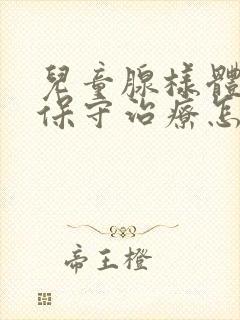 兒童腺樣體
保守治療怎
帝王橙